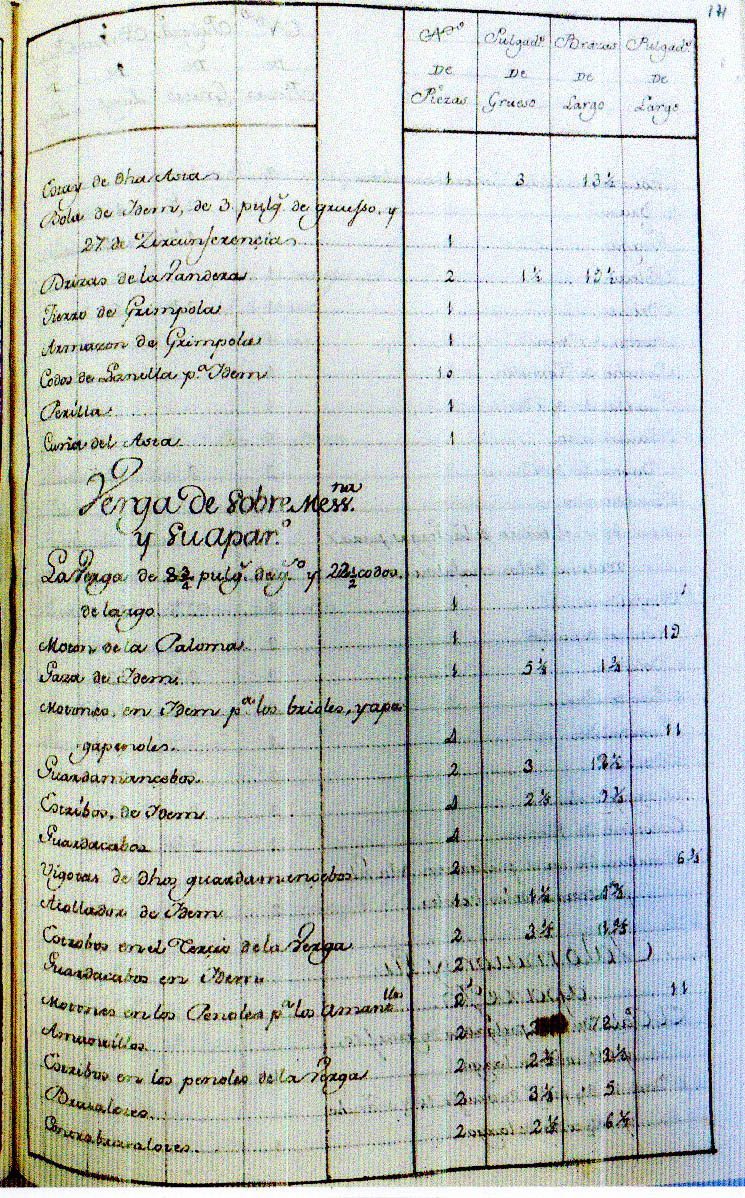 171
N.º Pulgad.s Brazas Pulgad.s
DE DE DE DE
Piezas Grueso Largo Largo
Estay de dha Asta 1 3 13½
Bola de Idem, de 3. pulg.s de gruesso, y
27. de Zircunferencia 1
Drizas de la Vandera 2 1½
Fierro de Grimpola 1
Armazon de Grimpola 1
Codos de Lanilla p.ª Idem 10
Perilla 1
Cuña del Asta 1
Verga de Sobre Mess.na
y su apar.º
La Verga de 8¾ pulg.s de g.º y 22½ codos
de largo 1
Moton de la Paloma 1 12
Gaza de Idem 1 5½
Motones, en Idem p.ª los brioles, y apa
gapenoles. 4 11
Guardamancebos. 2 3
Estribos, de Idem 4 2½
Guardacabos 4
Vigotas de dhos guardamancebos 2 6½
Acollador de Idem 1 1½
Estrobos en el Tercio de la Verga 2 3½
Guardacabos en Idem 2
Motones en los Penoles p.ª los Amantillos 2 11
Amuquillos 2
Estribos en los penoles de la Verga 2 2½ 2½
Brazalotes 2 3½ 5
Contrabrazalotes 2 2½ 6½